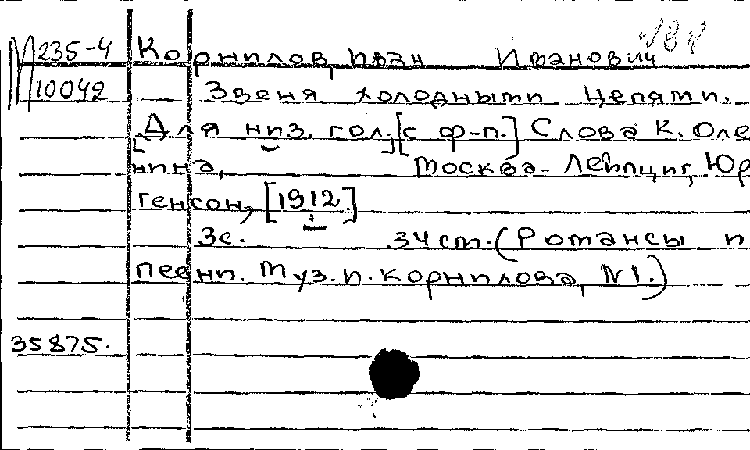 М235-4 Корнилов, Иван Иванович
10042 Звеня холодными цепями.
[Для низ. гол.] [с ф-п.] Слова К. Оле
нина, Москва-Лейпциг, Юр
генсон, [1912]
3с. 34 см. (Романсы и
песни. Муз. И. Корнилова, №1.)
35875.